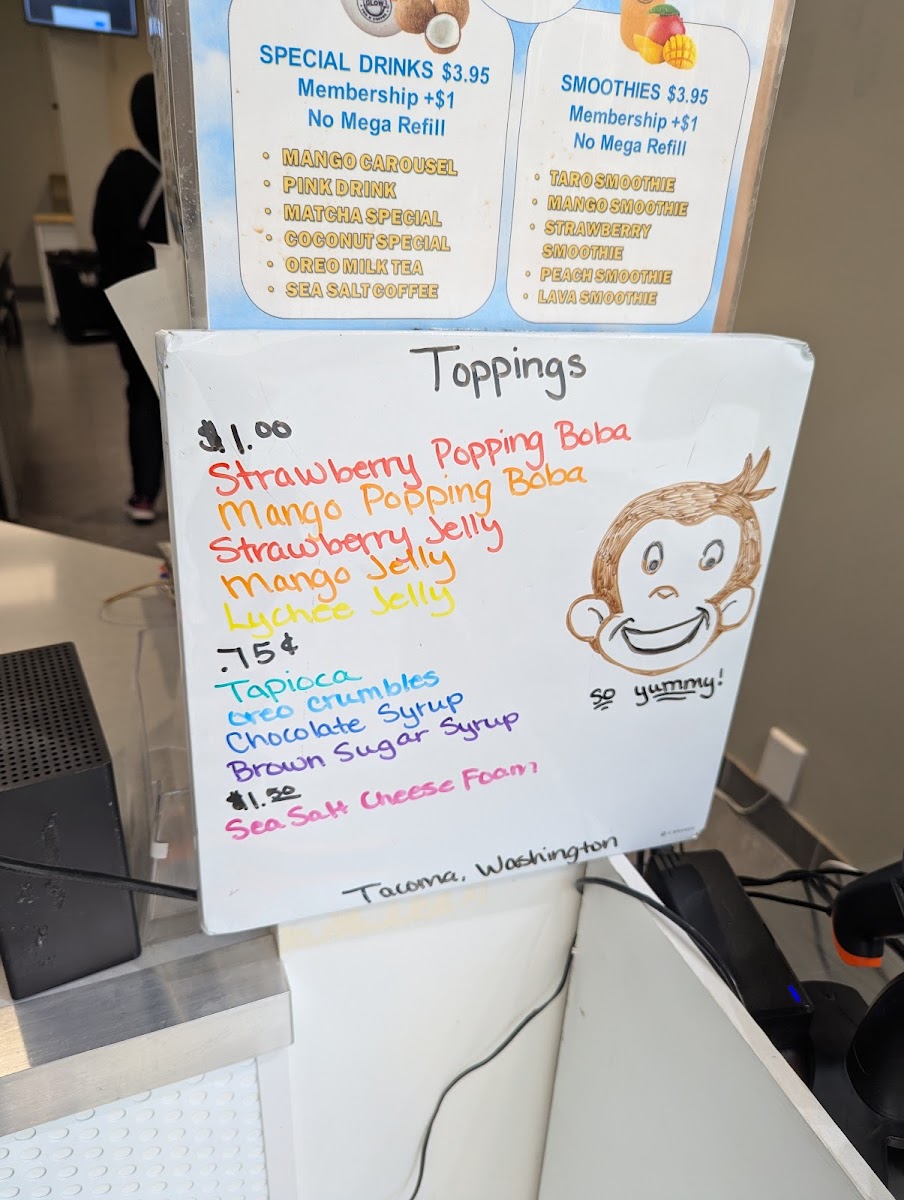 SPECIAL DRINKS $3.95
Membership +$1
No Mega Refill
• MANGO CAROUSEL
• PINK DRINK
• MATCHA SPECIAL
• COCONUT SPECIAL
• OREO MILK TEA
• SEA SALT COFFEE
SMOOTHIES $3.95
Membership +$1
No Mega Refill
• TARO SMOOTHIE
• MANGO SMOOTHIE
• STRAWBERRY
SMOOTHIE
• PEACH SMOOTHIE
• LAVA SMOOTHIE
Toppings
$1.00
Strawberry Popping Boba
Mango Popping Boba
Strawberry Jelly
Mango Jelly
Lychee Jelly
.75¢
Tapioca
oreo crumbles
Chocolate Syrup
Brown Sugar Syrup
$1.50
Sea Salt Cheese Foam
so yummy!
Tacoma, Washington